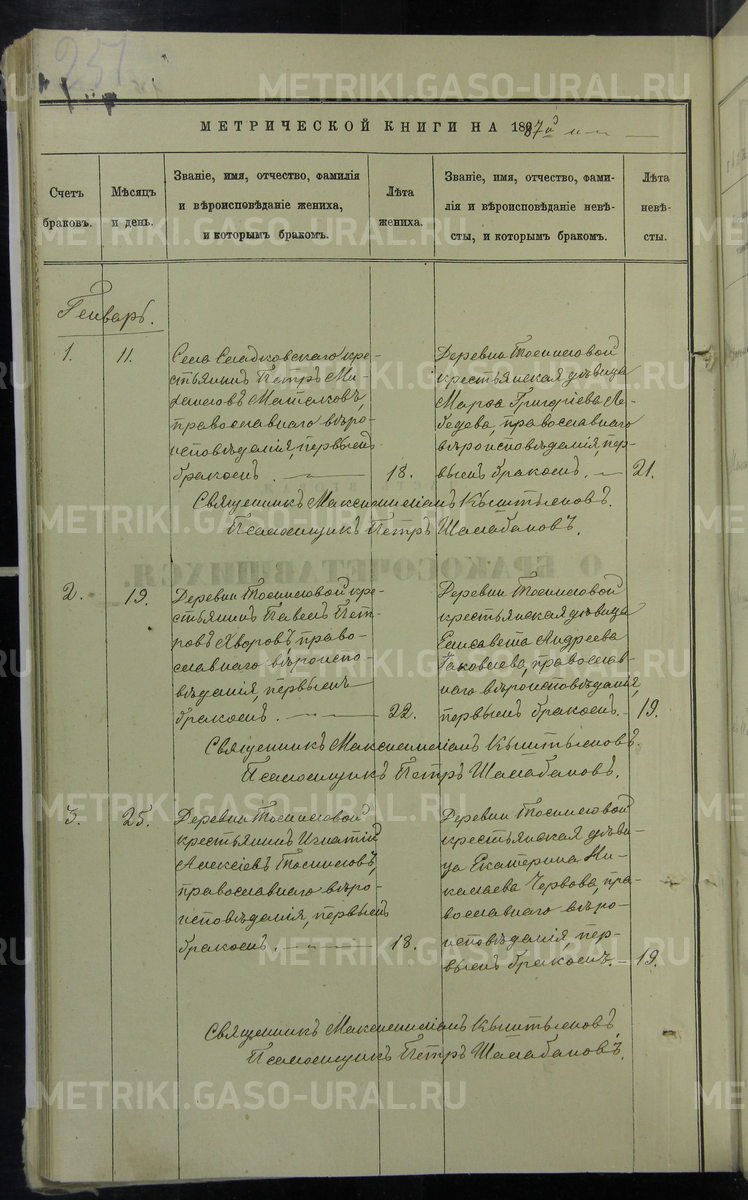 251
МЕТРИЧЕСКОЙ КНИГИ НА 1887й
Счетъ браковъ.
Мѣсяцъ и день.
Званіе, имя, отчество, фамилія
и вѣроисповѣданіе жениха,
и которымъ бракомъ.
Лѣта
жениха.
Званіе, имя, отчество, фами-
лія и вѣроисповѣданіе невѣ-
сты, и которымъ бракомъ.
Лѣта
невѣ-
сты.
Генварь.
1.
11.
Села Сладковскаго кре-
стьянинъ Петръ Ми-
хаиловъ
православнаго вѣро-
исповѣданія, первымъ
бракомъ.
18.
Деревни Томиловой
крестьянская дѣвица
Марѳа Григоріева Ле-
бедева, православнаго
вѣроисповѣданія, пер-
вымъ бракомъ.
21.
Священникъ Максимиліанъ Кыштымовъ.
Псаломщикъ Петръ Шалабановъ.
2.
19.
Деревни Томиловой кре-
стьянинъ Павелъ Пет-
ровъ Хворовъ, право-
славнаго вѣроиспо-
вѣданія, первымъ
бракомъ.
22.
Деревни Томиловой
крестьянская дѣвица
Елисавета Андреева
Яковлева, православ-
наго вѣроисповѣданія,
первымъ бракомъ.
19.
Священникъ Максимиліанъ Кыштымовъ.
Псаломщикъ Петръ Шалабановъ.
3.
25.
Деревни Томиловой
крестьянинъ Игнатій
Алексіевъ Томиловъ,
православнаго вѣро-
исповѣданія, первымъ
бракомъ.
18.
Деревни Томиловой
крестьянская дѣви-
ца Екатерина Ни-
калаева Червова, пра-
вославнаго вѣро-
исповѣданія, пер-
вымъ бракомъ.
19.
Священникъ Максимиліанъ Кыштымовъ.
Псаломщикъ Петръ Шалабановъ.
О БРАКОСОЧЕТАВШИХСЯ.
METRIKI.GASO-URAL.RU